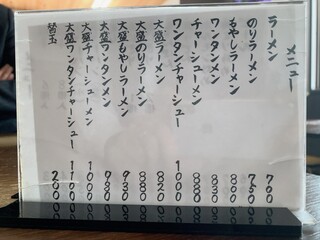 メニュー
ラーメン 700
のりラーメン 750
もやしラーメン 800
ワンタンメン 830
チャーシューメン 880
ワンタンチャーシュー 1000
大盛ラーメン 820
大盛のりラーメン 880
大盛もやしラーメン 930
大盛ワンタンメン 980
大盛チャーシューメン 1000
大盛ワンタンチャーシュー 1100
替玉 200